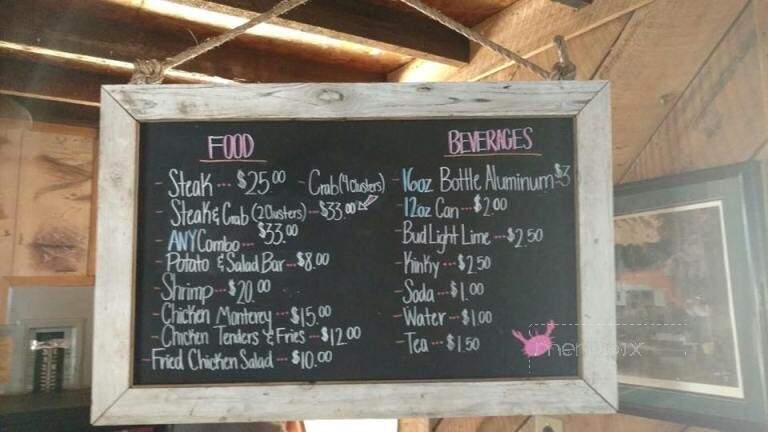 FOOD
- Steak --- $25.00 - Crab (4 Clusters)
- Steak & Crab (2 Clusters) -- $33.00
- ANY Combo -- $33.00
- Potato & Salad Bar -- $8.00
- Shrimp --- $20.00
- Chicken Monterey --- $15.00
- Chicken Tenders & Fries --- $12.00
- Fried Chicken Salad --- $10.00
BEVERAGES
- 16oz Bottle Aluminum - $3
- 12oz Can --- $2.00
- Bud Light Lime --- $2.50
- Kinky --- $2.50
- Soda --- $1.00
- Water --- $1.00
- Tea --- $1.50
menupix